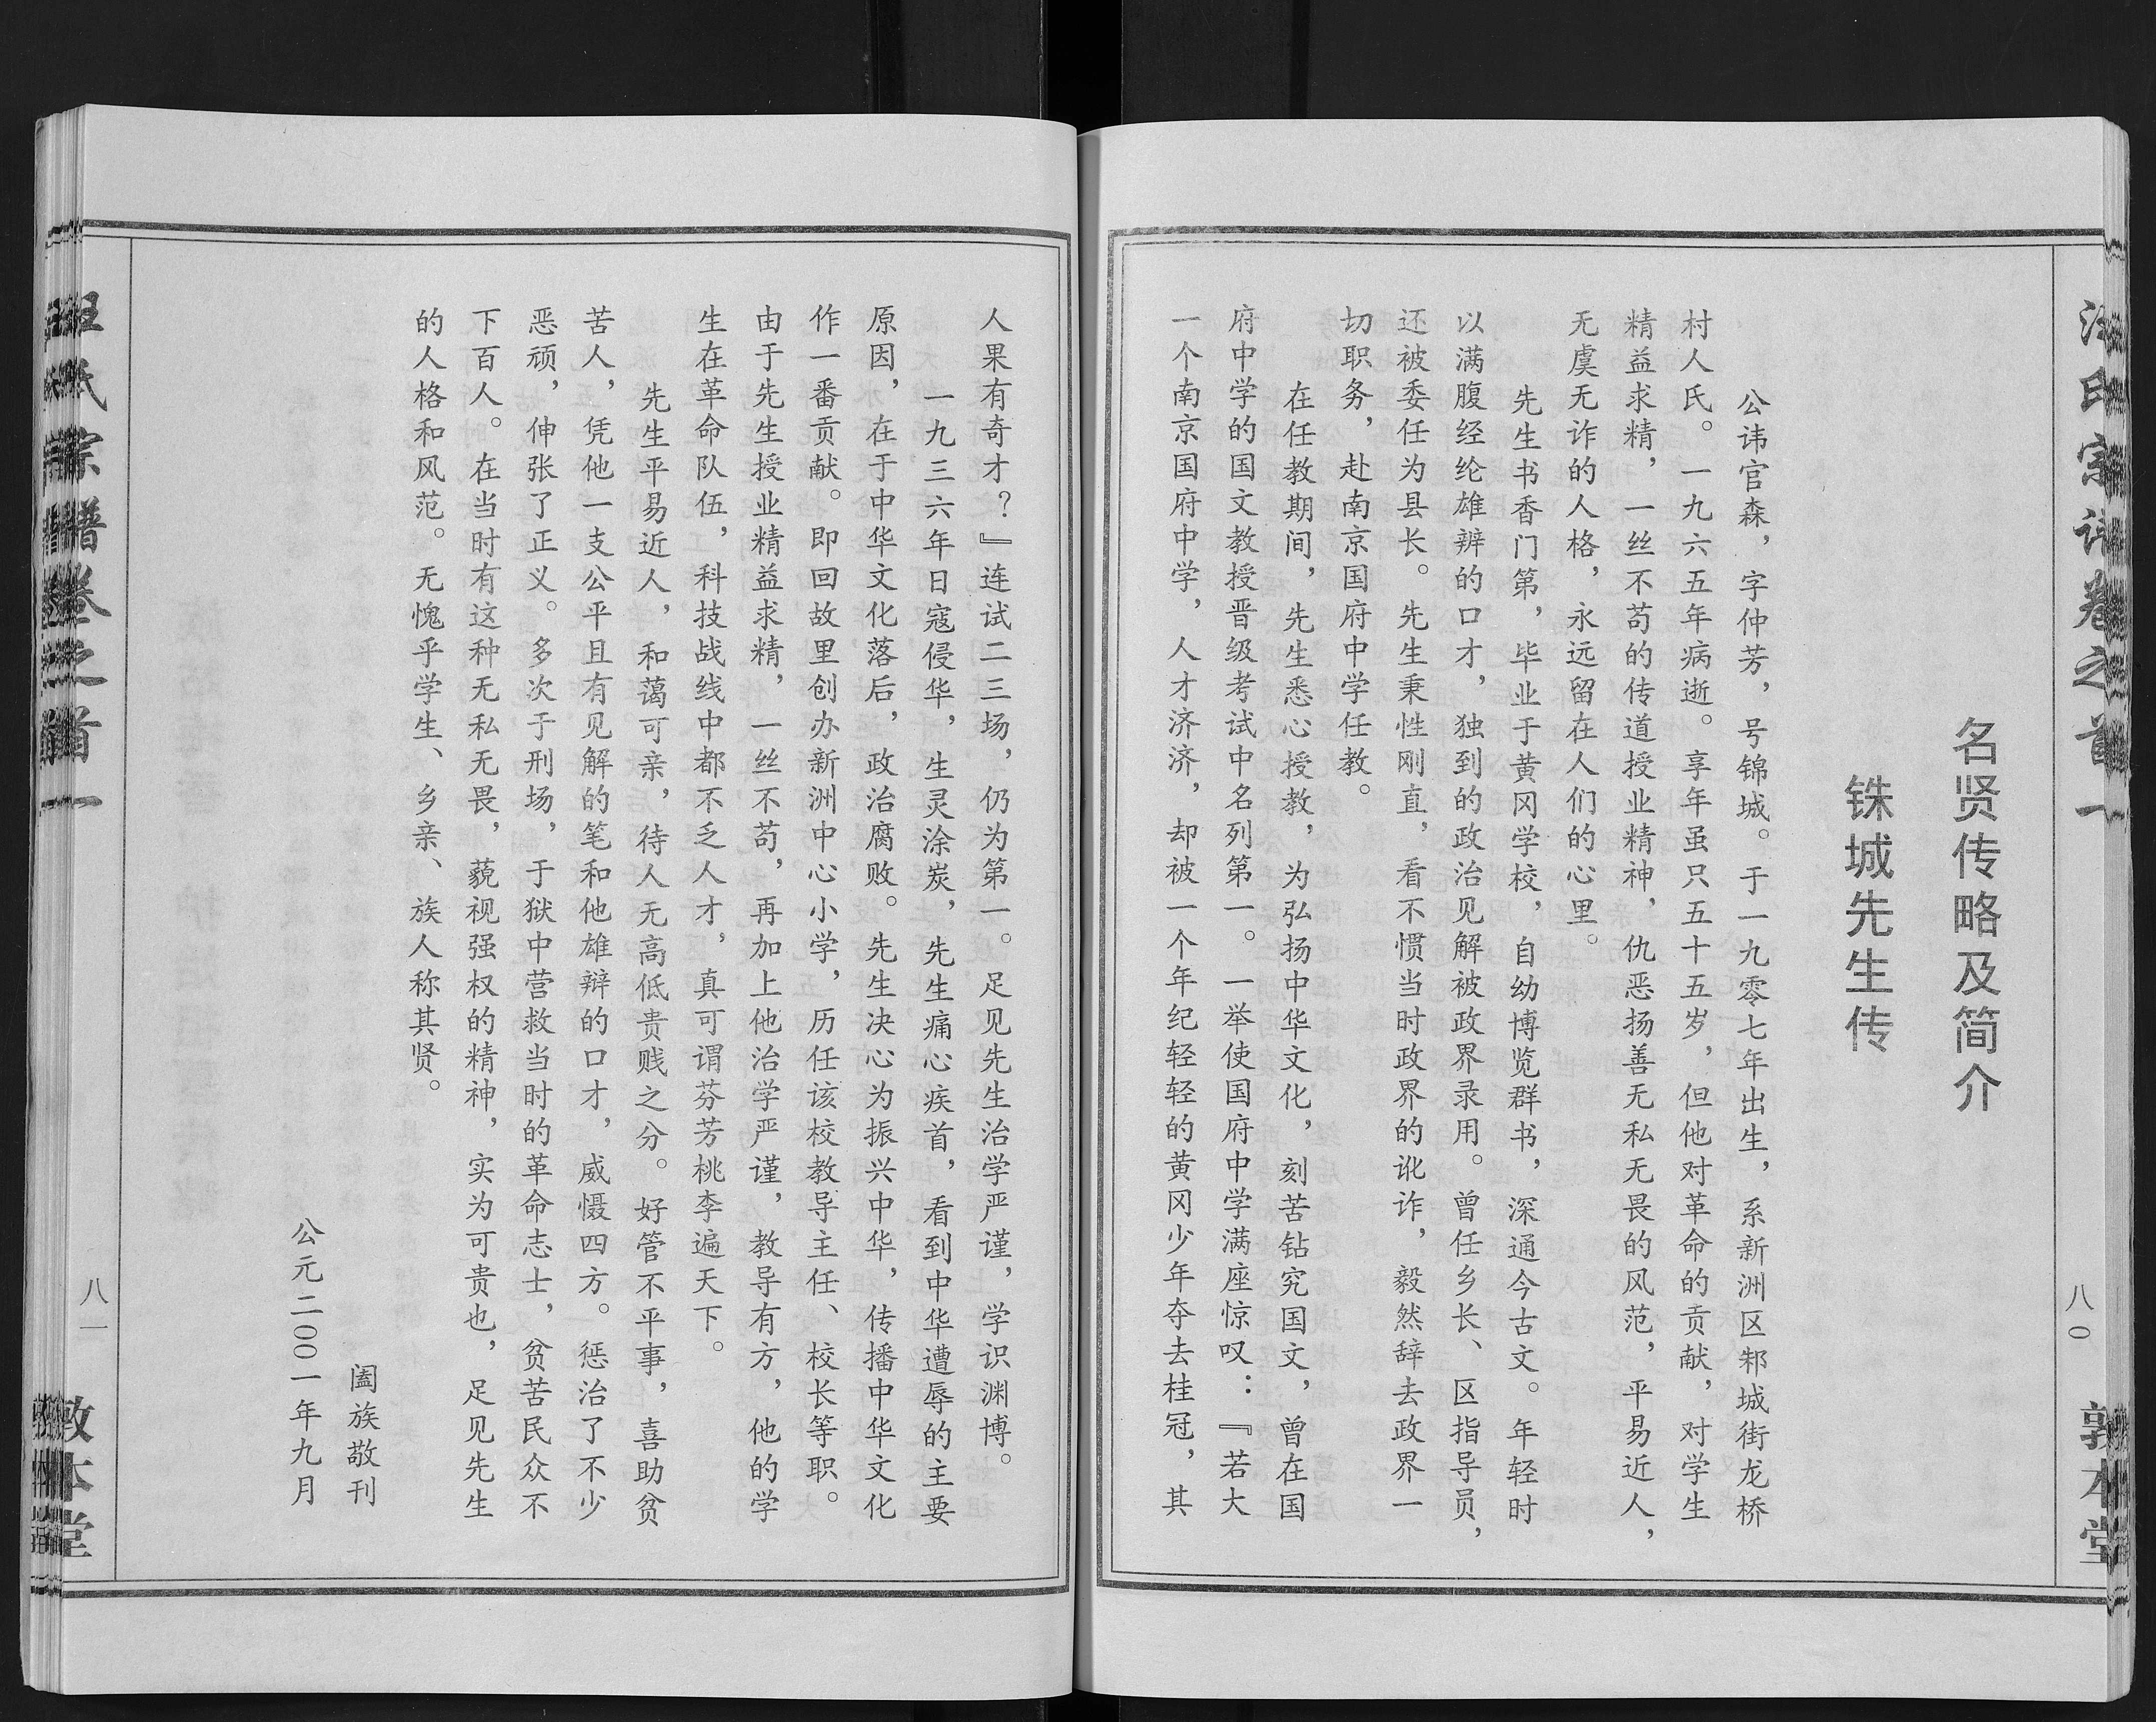 汪氏宗谱卷之首一
八〇
敦本堂
名贤传略及简介
铢城先生传
公讳官森，字仲芳，号锦城。于一九零七年出生，系新洲区邾城街龙桥
村人氏。一九六五年病逝。享年虽只五十五岁，但他对革命的贡献，对学生
精益求精，一丝不苟的传道授业精神，仇恶扬善无私无畏的风范，平易近人，
无虞无诈的人格，永远留在人们的心里。
先生书香门第，毕业于黄冈学校，自幼博览群书，深通今古文。年轻时
以满腹经纶雄辨的口才，独到的政治见解被政界录用。曾任乡长、区指导员，
还被委任为县长。先生秉性刚直，看不惯当时政界的讹诈，毅然辞去政界一
切职务，赴南京国府中学任教。
在任教期间，先生悉心授教，为弘扬中华文化，刻苦钻究国文，曾在国
府中学的国文教授晋级考试中名列第一。一举使国府中学满座惊叹：『若大
一个南京国府中学，人才济济，却被一个年纪轻轻的黄冈少年夺去桂冠，其
人果有奇才？』连试二三场，仍为第一。足见先生治学严谨，学识渊博。
一九三六年日寇侵华，生灵涂炭，先生痛心疾首，看到中华遭辱的主要
原因，在于中华文化落后，政治腐败。先生决心为振兴中华，传播中华文化
作一番贡献。即回故里创办新洲中心小学，历任该校教导主任、校长等职。
由于先生授业精益求精，一丝不苟，再加上他治学严谨，教导有方，他的学
生在革命队伍，科技战线中都不乏人才，真可谓芬芳桃李遍天下。
先生平易近人，和蔼可亲，待人无高低贵贱之分。好管不平事，喜助贫
苦人，凭他一支公平且有见解的笔和他雄辩的口才，威慑四方。惩治了不少
恶顽，伸张了正义。多次于刑场，于狱中营救当时的革命志士，贫苦民众不
下百人。在当时有这种无私无畏，藐视强权的精神，实为可贵也，足见先生
的人格和风范。无愧乎学生、乡亲、族人称其贤。
阖族敬刊
公元二〇〇一年九月
汪氏宗谱卷之首一
八一
敦本堂